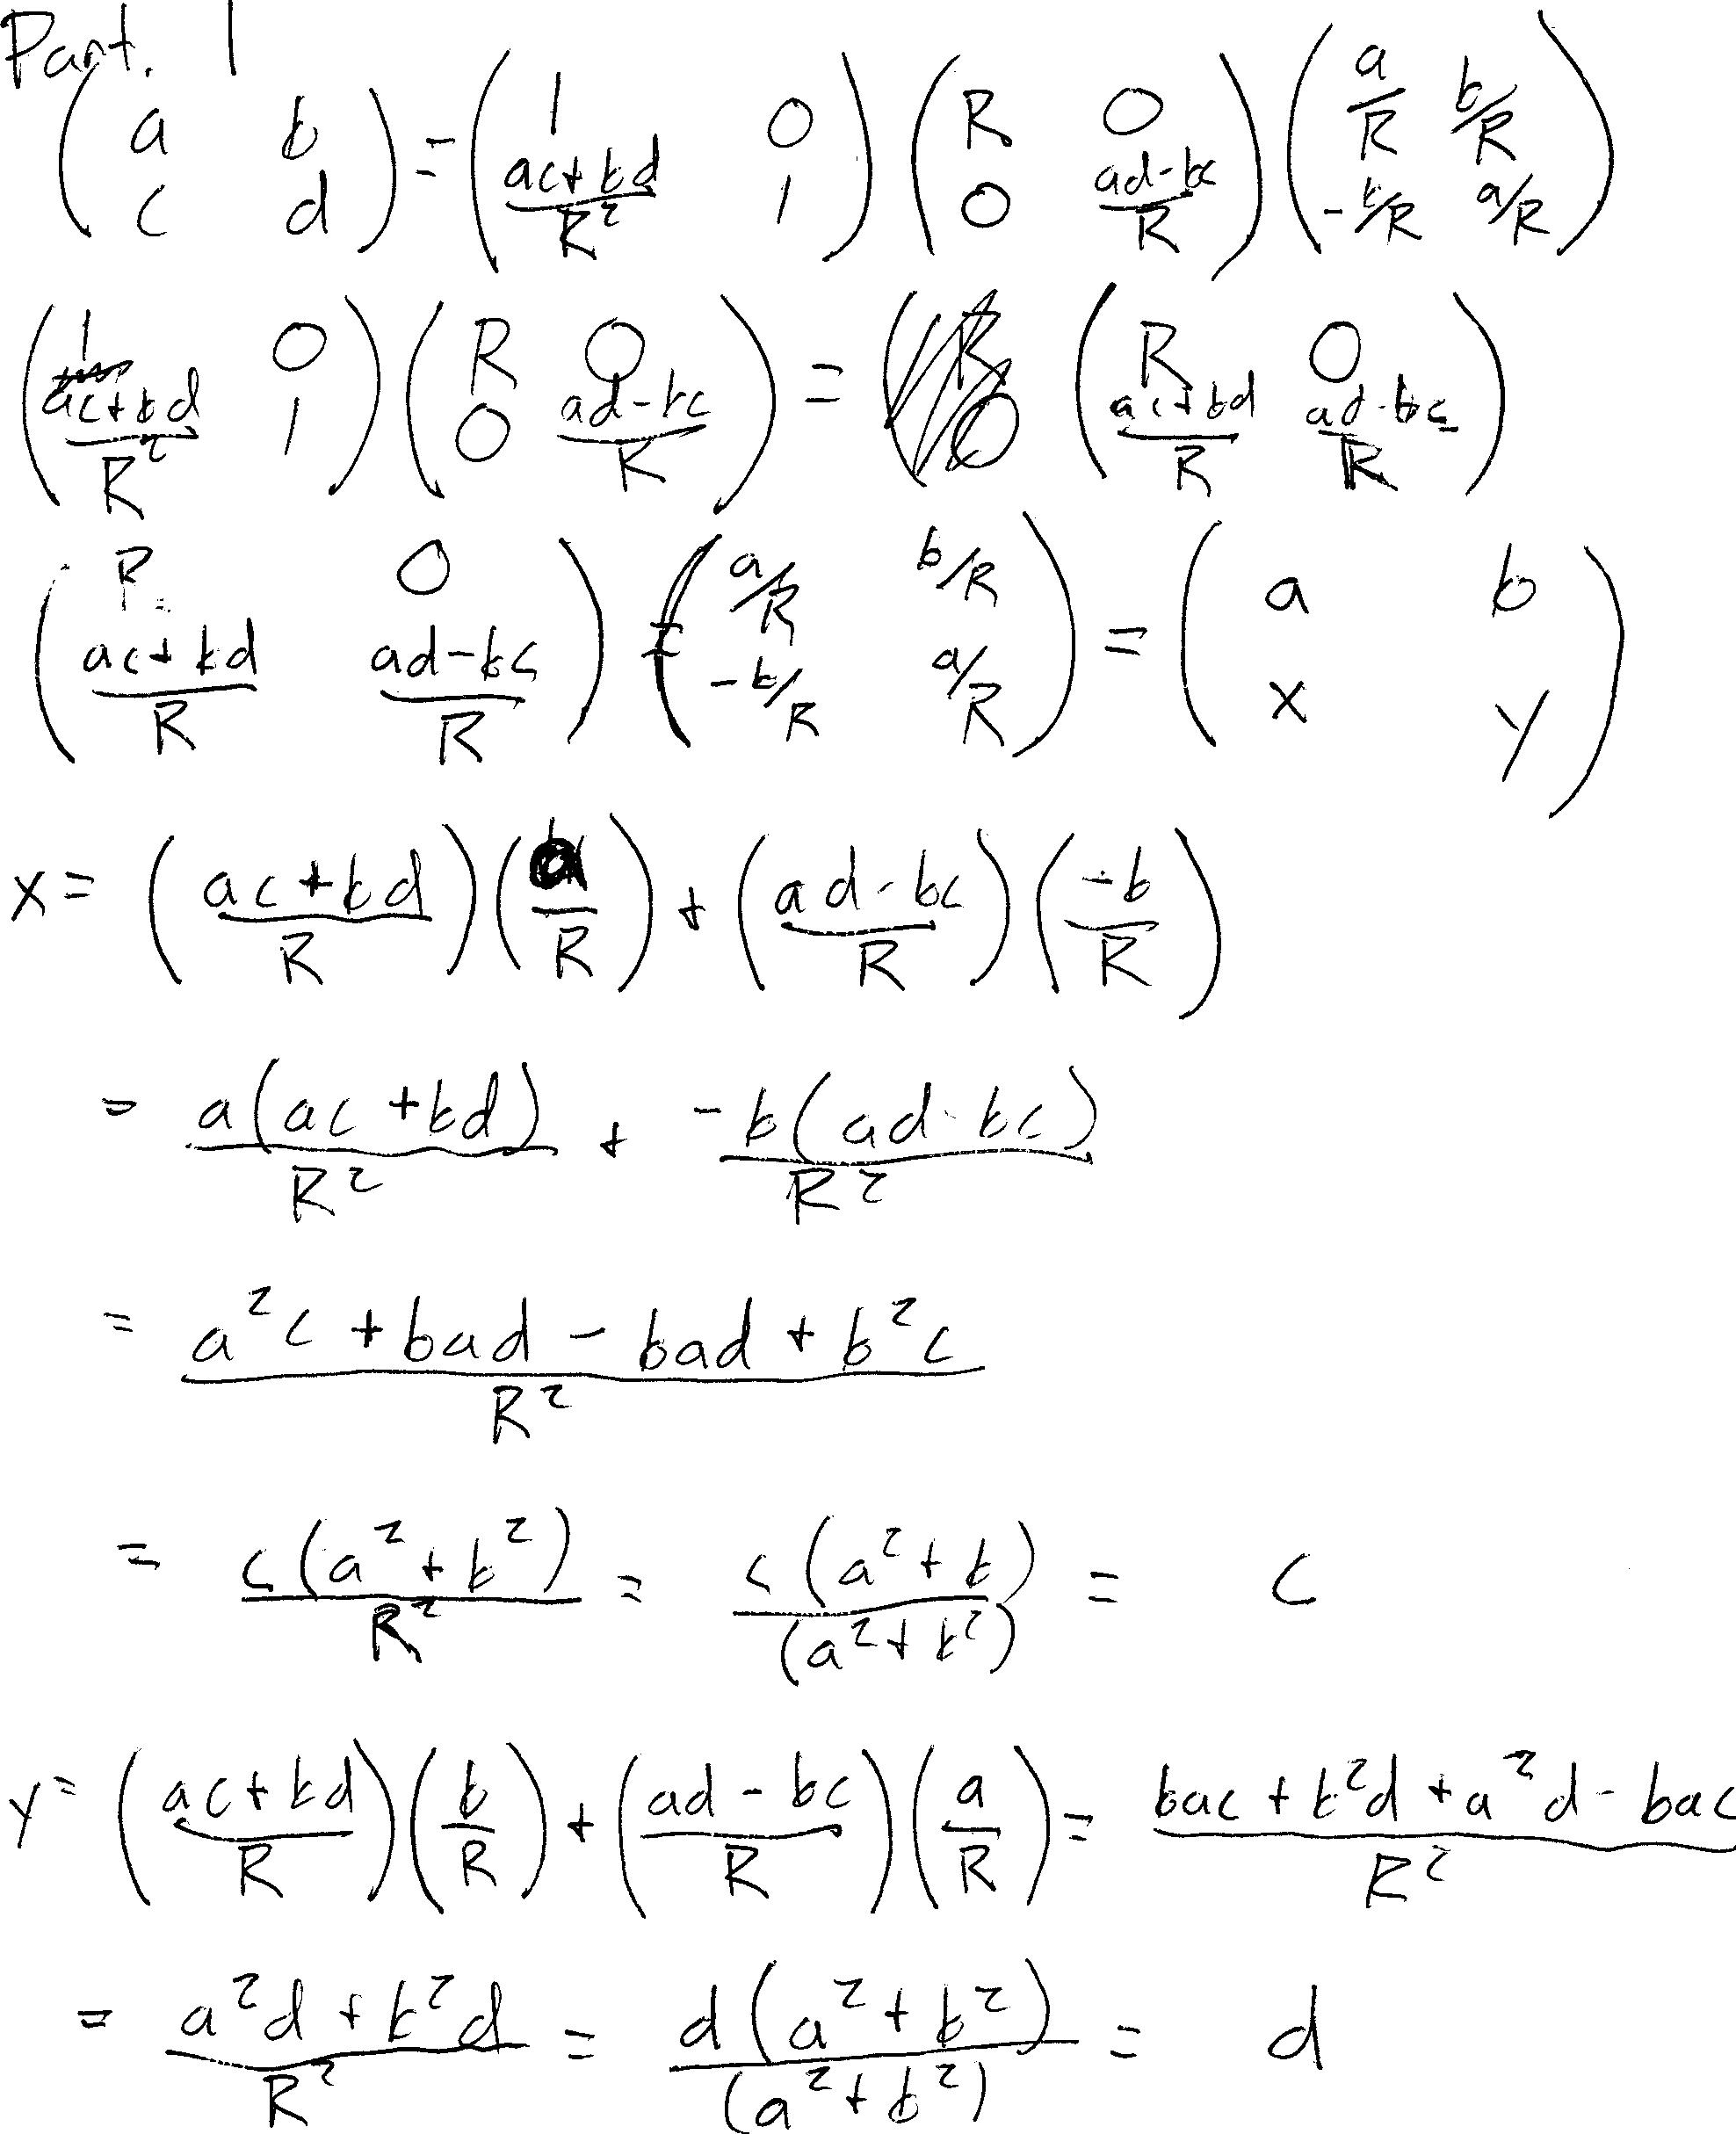 Part. 1
\begin{pmatrix} a & b \\ c & d \end{pmatrix} = \begin{pmatrix} 1 & 0 \\ \frac{ac+bd}{R^2} & 1 \end{pmatrix} \begin{pmatrix} R & 0 \\ 0 & \frac{ad-bc}{R} \end{pmatrix} \begin{pmatrix} \frac{a}{R} & b/R \\ -b/R & a/R \end{pmatrix}
\begin{pmatrix} 1 & 0 \\ \frac{ac+bd}{R^2} & 1 \end{pmatrix} \begin{pmatrix} R & 0 \\ 0 & \frac{ad-bc}{R} \end{pmatrix} = \begin{pmatrix} R & 0 \\ \frac{ac+bd}{R} & \frac{ad-bc}{R} \end{pmatrix}
\begin{pmatrix} R & 0 \\ \frac{ac+bd}{R} & \frac{ad-bc}{R} \end{pmatrix} = \begin{pmatrix} a/R & b/R \\ -b/R & a/R \end{pmatrix} = \begin{pmatrix} a & b \\ x & y \end{pmatrix}
x = \left( \frac{ac+bd}{R} \right) \left( \frac{a}{R} \right) + \left( \frac{ad-bc}{R} \right) \left( \frac{-b}{R} \right)
= \frac{a(ac+bd)}{R^2} + \frac{-b(ad-bc)}{R^2}
= \frac{a^2c + bad - bad + b^2c}{R^2}
= \frac{c(a^2+b^2)}{R^2} = \frac{c(a^2+b)}{(a^2+b^2)} = c
y = \left( \frac{ac+bd}{R} \right) \left( \frac{b}{R} \right) + \left( \frac{ad-bc}{R} \right) \left( \frac{a}{R} \right) = \frac{bac + b^2d + a^2d - bac}{R^2}
= \frac{a^2d + b^2d}{R^2} = \frac{d(a^2+b^2)}{(a^2+b^2)} = d